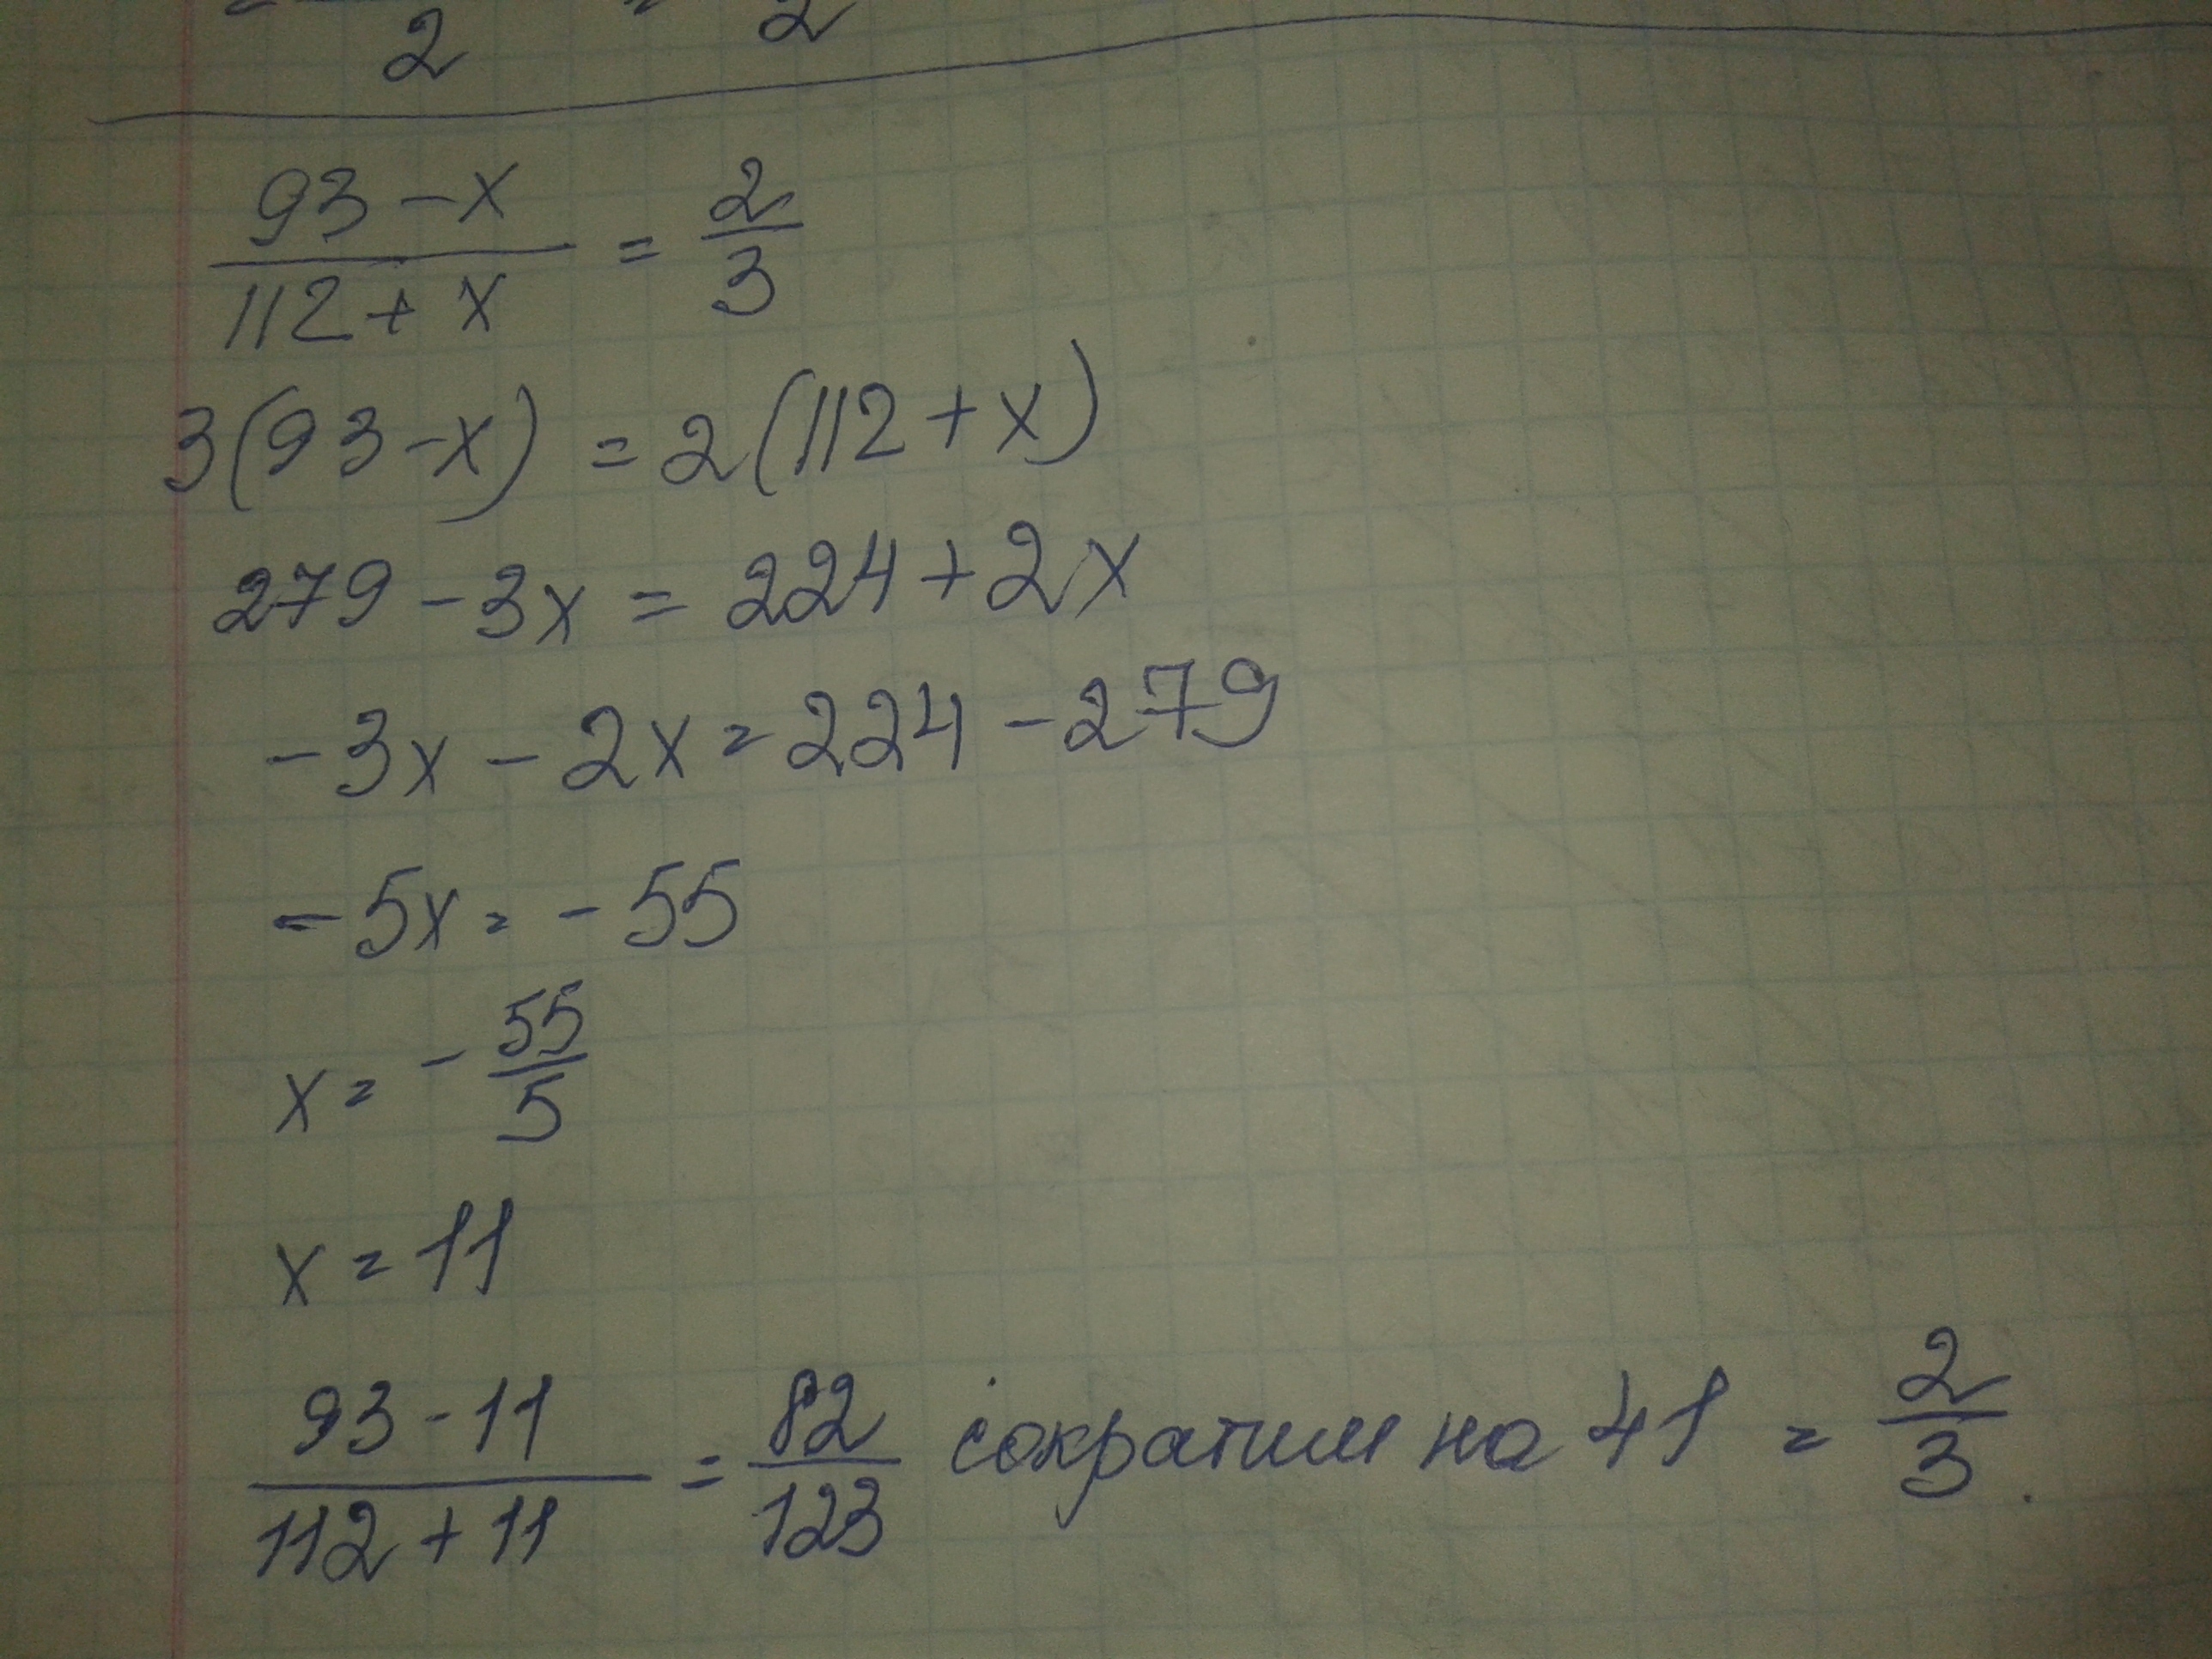 = 2 = 2
93 - x / 112 + x = 2/3
3(93 - x) = 2(112 + x)
279 - 3x = 224 + 2x
- 3x - 2x = 224 - 279
- 5x = - 55
x = - 55/5
x = 11
93 - 11 / 112 + 11 = 82/123 сократим на 41 = 2/3.